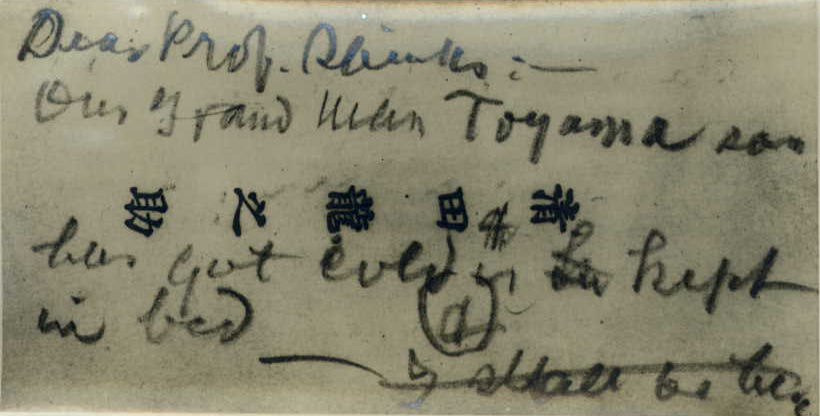 Dear Prof. :—
Our Grand Man Toyama san
清田龍之助
has got cold & is kept
in bed
shall be